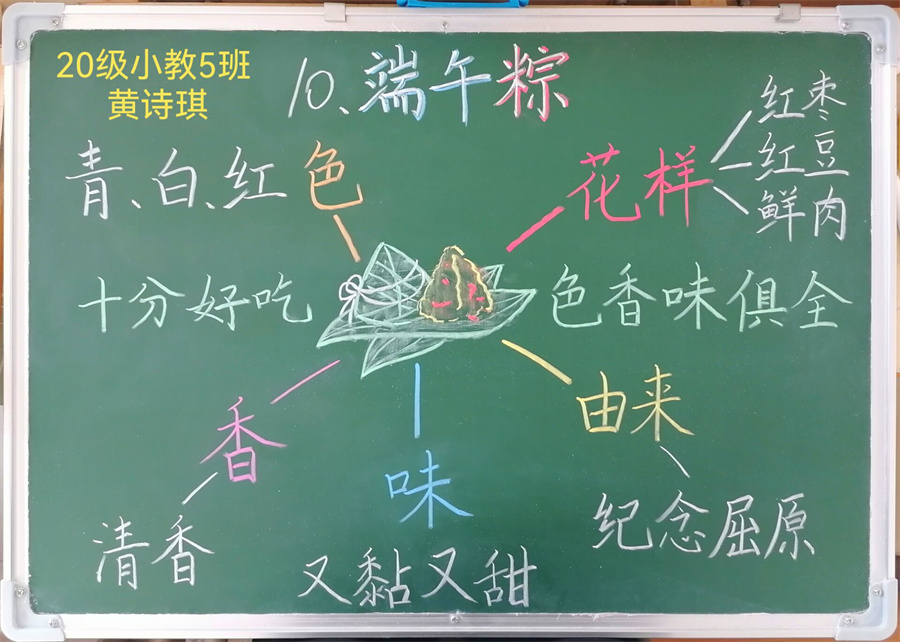 20级小教5班
黄诗琪
10、端午粽
青、白、红 色
花样
红枣
红豆
鲜肉
十分好吃
色香味俱全
香
清香
味
又黏又甜
由来
纪念屈原